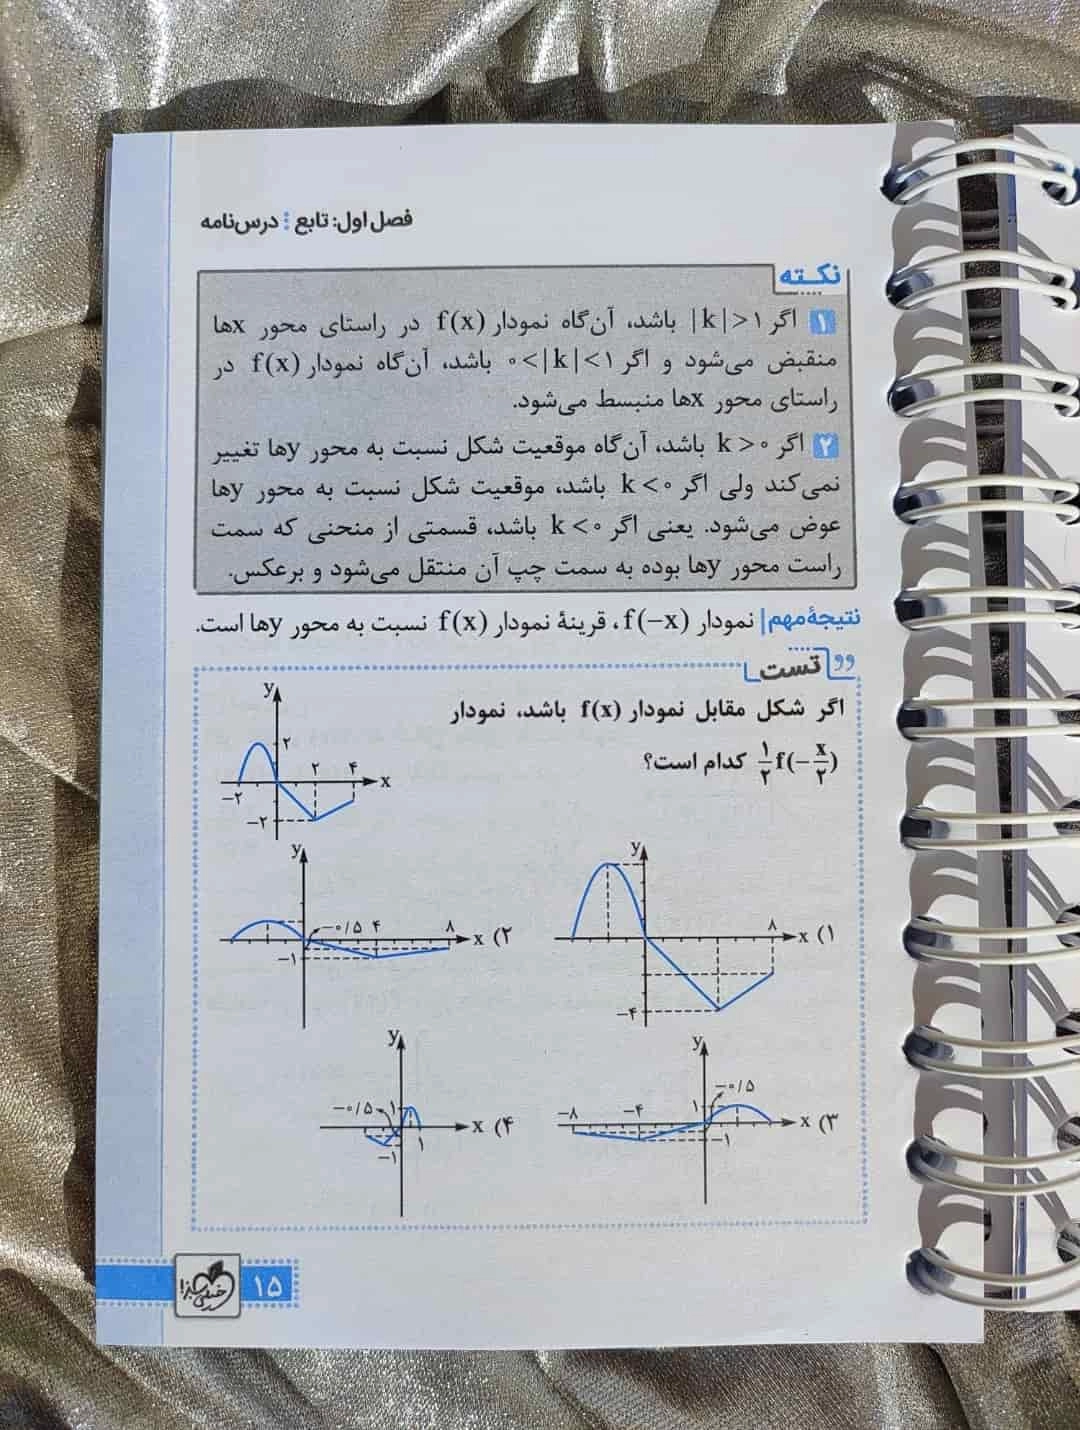 فصل اول: تابع درس‌نامه
نکته
۱ اگر |k|>۱ باشد، آن‌گاه نمودار f(x) در راستای محور xها
منقبض می‌شود و اگر ۰<|k|<۱ باشد، آن‌گاه نمودار f(x) در
راستای محور xها منبسط می‌شود.
۲ اگر k>۰ باشد، آن‌گاه موقعیت شکل نسبت به محور yها تغییر
نمی‌کند ولی اگر k<۰ باشد، موقعیت شکل نسبت به محور yها
عوض می‌شود. یعنی اگر k<۰ باشد، قسمتی از منحنی که سمت
راست محور yها بوده به سمت چپ آن منتقل می‌شود و برعکس.
نتیجهٔ مهم| نمودار f(−x)، قرینهٔ نمودار f(x) نسبت به محور yها است.
تست
اگر شکل مقابل نمودار f(x) باشد، نمودار
۱/۲ f(−x/۲) کدام است؟
y
۲
۲ ۴
x
−۲
−۲
y
۸
x
۱)
−۴
y
−۰/۵ ۴ ۸
x
۲)
−۱
y
−۰/۵
−۸ −۴ ۱
x
۳)
−۱
y
−۰/۵ ۱
x
۴)
۱
−۱
خیلی سبز
۱۵